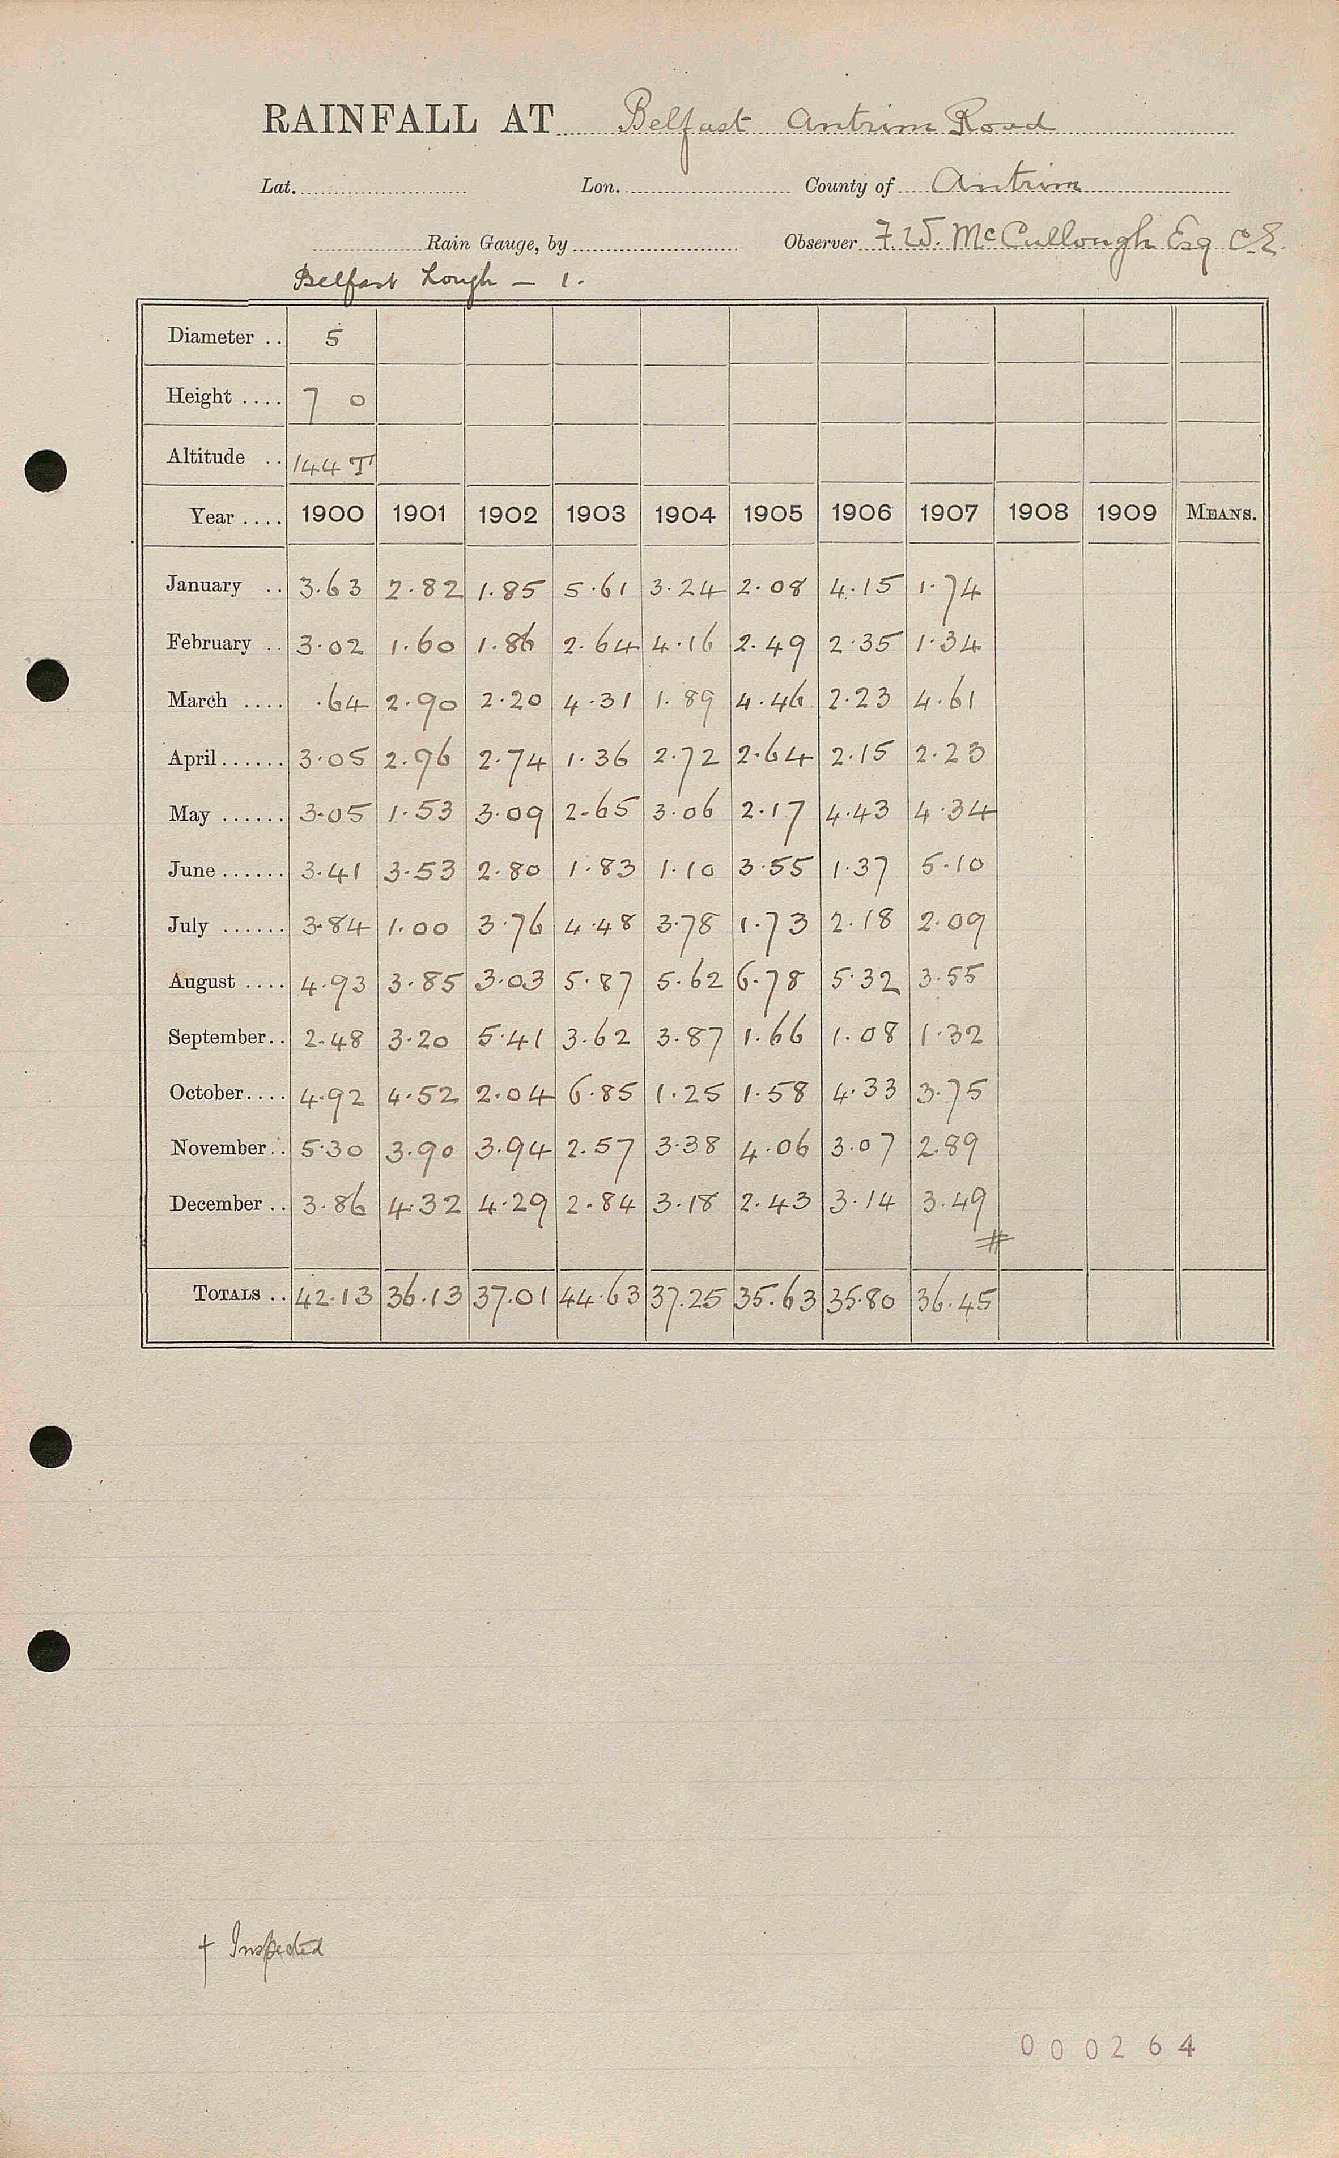 RAINFALL AT Belfast Antrim Road
Lat. Lon. County of Antrim
Rain Gauge, by Observer F W. McCullough Esq C.E.
Belfast Lough – 1.
Diameter .. 5
Height .... 7 0
Altitude .. 144 T
Year .... 1900 1901 1902 1903 1904 1905 1906 1907 1908 1909 MEANS.
January .. 3.63 2.82 1.85 5.61 3.24 2.08 4.15 1.74
February .. 3.02 1.60 1.86 2.64 4.16 2.49 2.35 1.34
March .... .64 2.90 2.20 4.31 1.89 4.46 2.23 4.61
April ...... 3.05 2.96 2.74 1.36 2.72 2.64 2.15 2.23
May ...... 3.05 1.53 3.09 2.65 3.06 2.17 4.43 4.34
June ...... 3.41 3.53 2.80 1.83 1.10 3.55 1.37 5.10
July ...... 3.84 1.00 3.76 4.48 3.78 1.73 2.18 2.09
August .... 4.93 3.85 3.03 5.87 5.62 6.78 5.32 3.55
September.. 2.48 3.20 5.41 3.62 3.87 1.66 1.08 1.32
October.... 4.92 4.52 2.04 6.85 1.25 1.58 4.33 3.75
November.. 5.30 3.90 3.94 2.57 3.38 4.06 3.07 2.89
December .. 3.86 4.32 4.29 2.84 3.18 2.43 3.14 3.49
#
TOTALS .. 42.13 36.13 37.01 44.63 37.25 35.63 35.80 36.45
† Inspected
000264